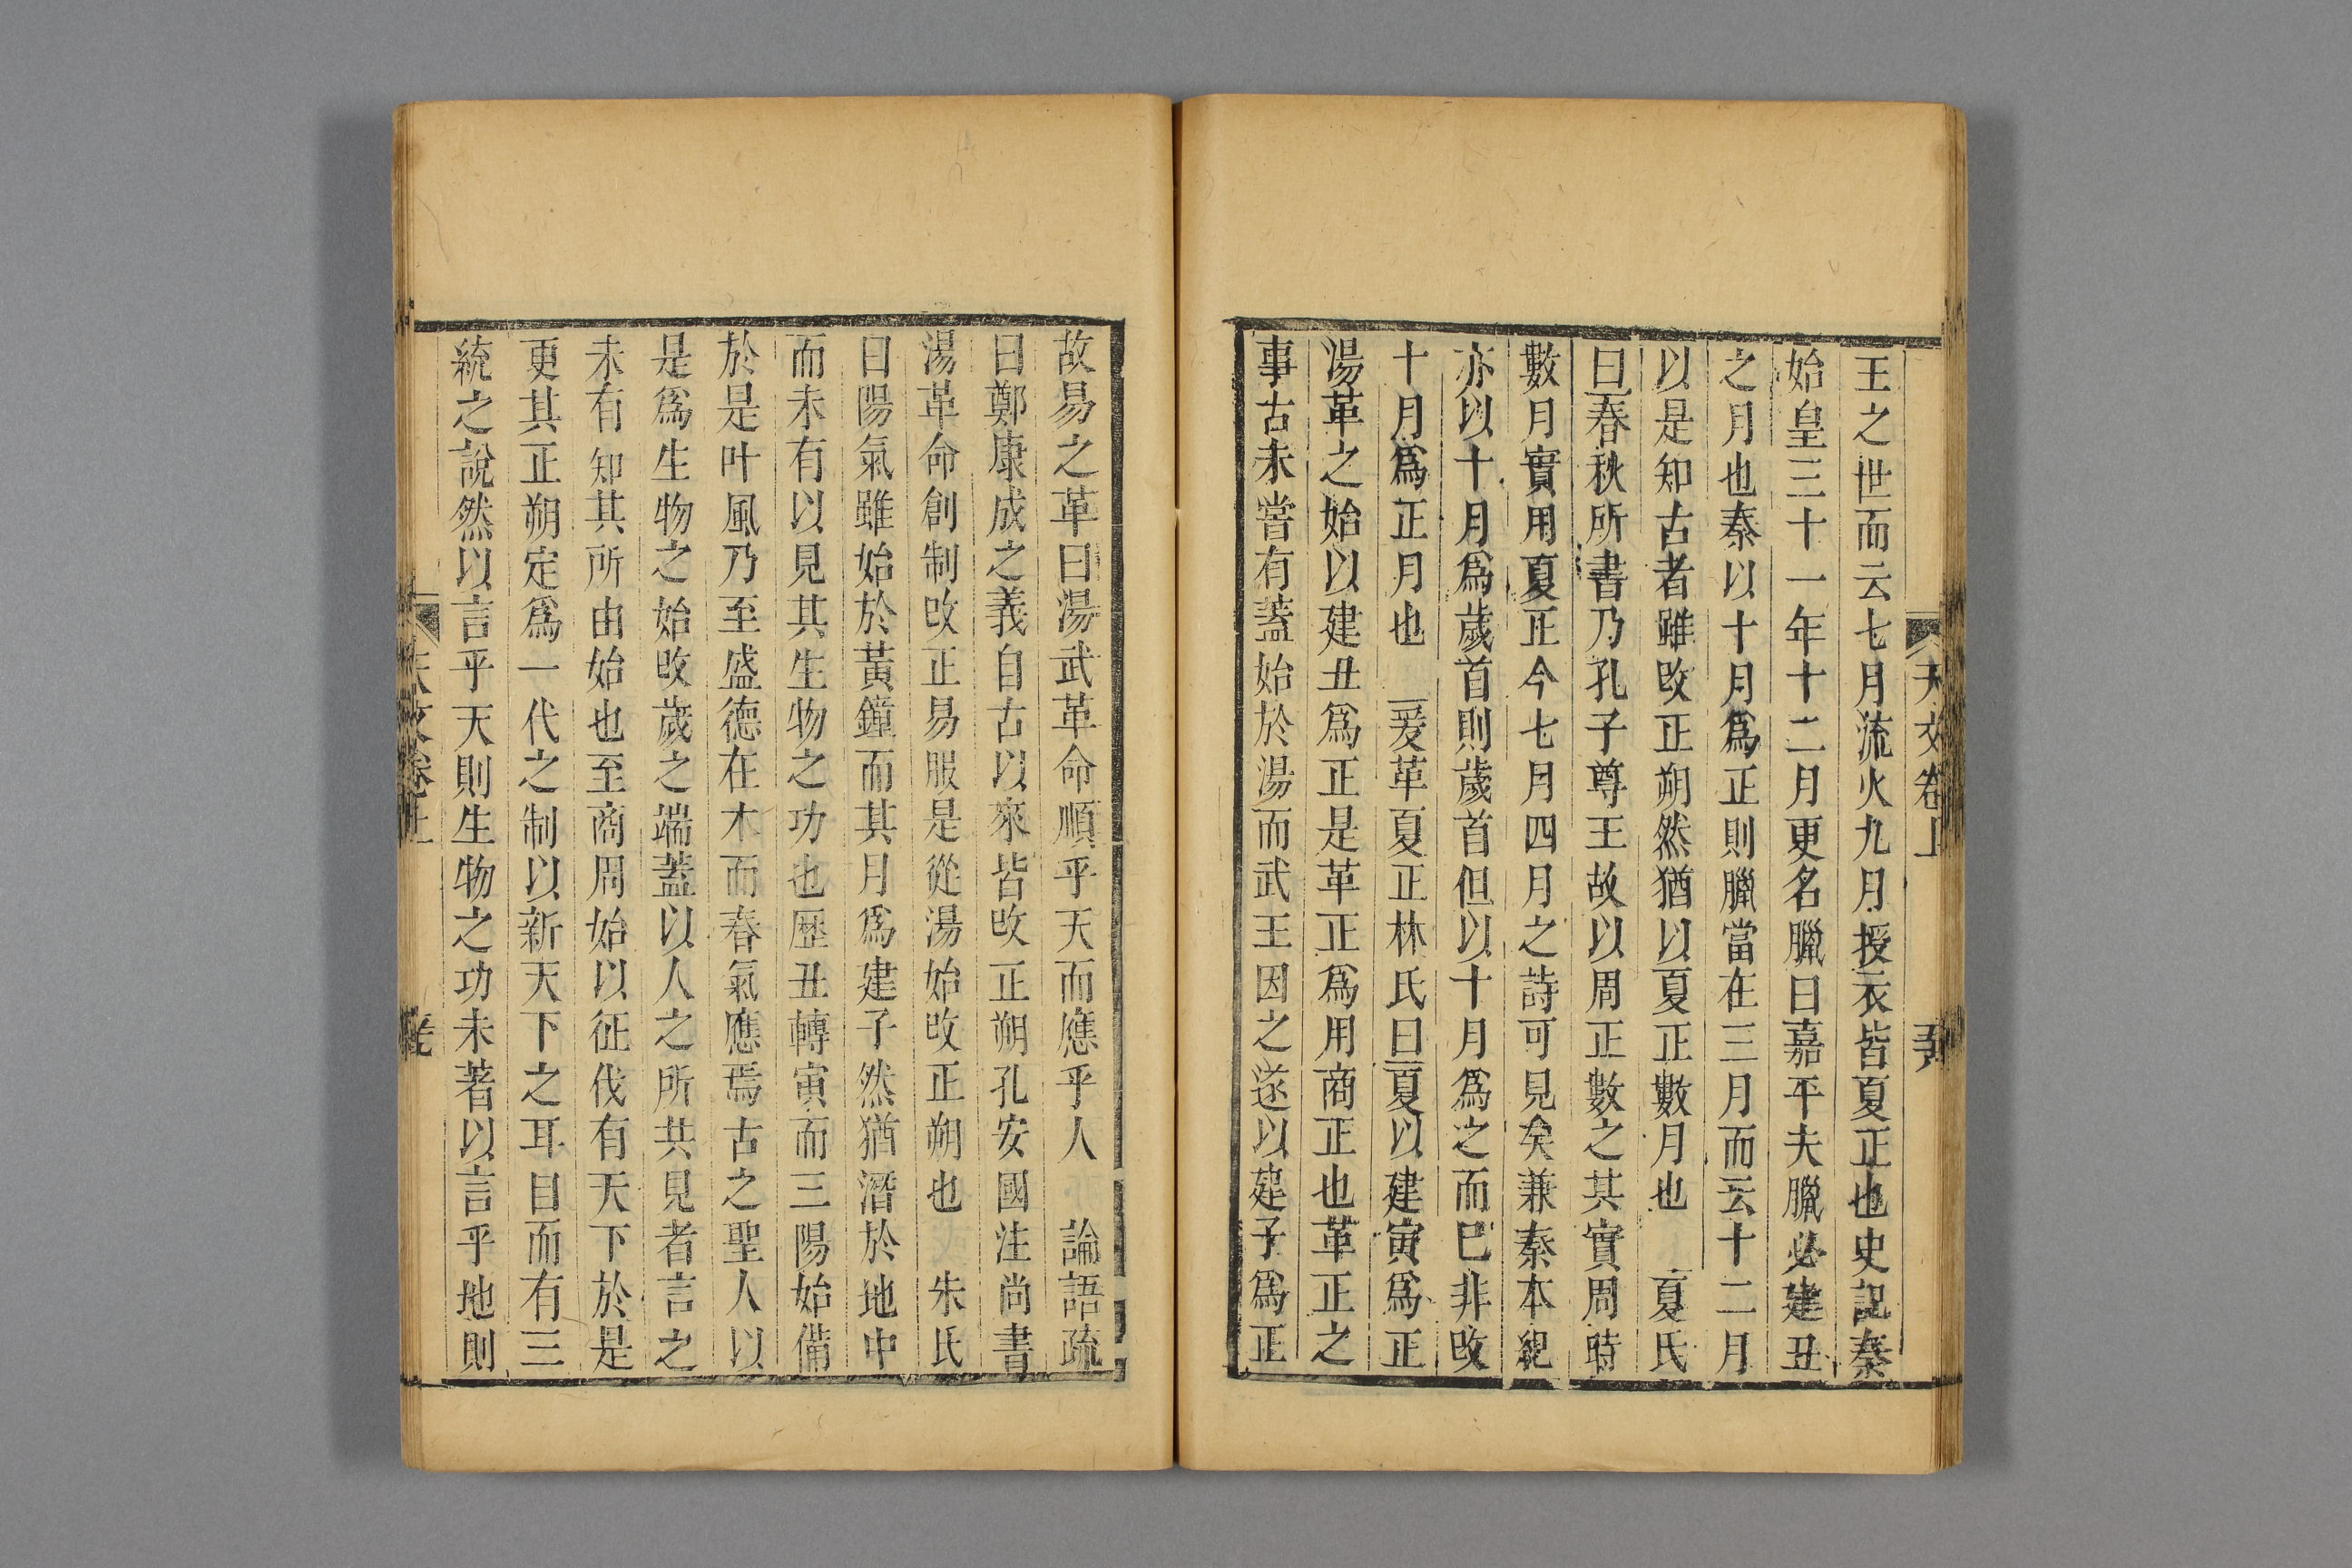 天文卷上
王之世而云七月流火九月授衣皆夏正也史記秦
始皇三十一年十二月更名臘曰嘉平夫臘必建丑
之月也秦以十月爲正則臘當在三月而云十二月
以是知古者雖改正朔然猶以夏正數月也　夏氏
曰春秋所書乃孔子尊王故以周正數之其實周時
數月實用夏正今七月四月之詩可見矣兼秦本紀
亦以十月爲歲首則歲首但以十月爲之而已非改
十月爲正月也　爰革夏正林氏曰夏以建寅爲正
湯革之始以建丑爲正是革正爲用商正也革正之
事古未嘗有蓋始於湯而武王因之遂以建子爲正
故易之革曰湯武革命順乎天而應乎人　論語疏
曰鄭康成之義自古以來皆改正朔孔安國注尚書
湯革命創制改正易服是從湯始改正朔也　朱氏
曰陽氣雖始於黃鐘而其月爲建子然猶潛於地中
而未有以見其生物之功也歷丑轉寅而三陽始備
於是叶風乃至盛德在木而春氣應焉古之聖人以
是爲生物之始改歲之端蓋以人之所共見者言之
未有知其所由始也至商周始以征伐有天下於是
更其正朔定爲一代之制以新天下之耳目而有三
統之說然以言乎天則生物之功未著以言乎地則
天文卷上